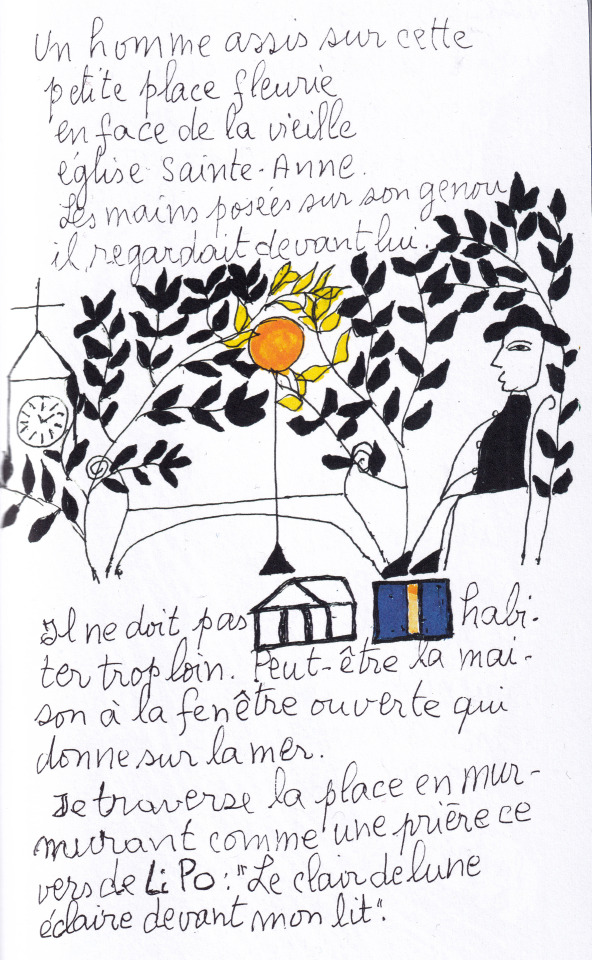 Un homme assis sur cette
petite place fleurie
en face de la vieille
église Sainte-Anne.
Les mains posées sur son genou
il regardait devant lui.
Il ne doit pas habi-
ter trop loin. Peut-être la mai-
son à la fenêtre ouverte qui
donne sur la mer.
Je traverse la place en mur-
murant comme une prière ce
vers de Li Po : "Le clair de lune
éclaire devant mon lit".